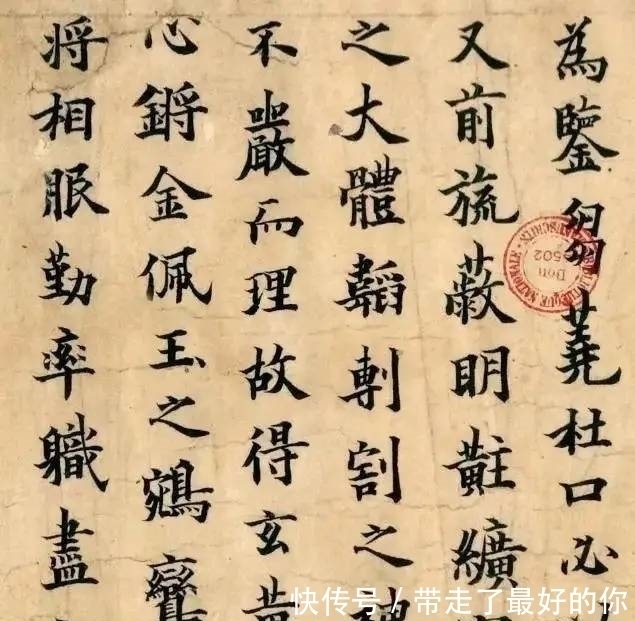 為鑒芻蕘杜口必
又前旒蔽明黈纊
之大體韜剸割之
不嚴而理故得玄黃
心鏘金佩玉之鵷鸞
将相服勤率職盡
NATIONALE
Don
快传号/带走了最好的你